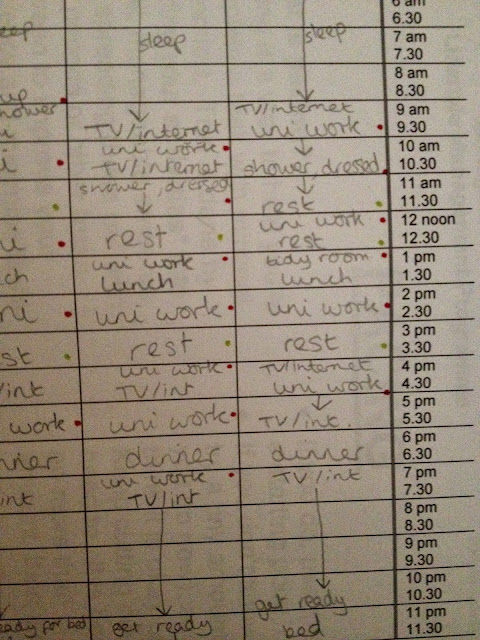 6 am
6.30
eep sleep sleep 7 am
7.30
8 am
8.30
up
hower TV/internet 9 am
TV/internet uni work 9.30
uni work 10 am
i TV/internet shower, dressed 10.30
shower, dressed 11 am
rest 11.30
uni work 12 noon
ni rest rest 12.30
uni work tidy room 1 pm
ch lunch lunch 1.30
2 pm
ni uni work uni work 2.30
3 pm
st rest rest 3.30
uni work TV/internet 4 pm
/int TV/int uni work 4.30
5 pm
work uni work TV/int. 5.30
6 pm
nner dinner dinner 6.30
uni work TV/int 7 pm
int TV/int 7.30
8 pm
8.30
9 pm
9.30
10 pm
get ready 10.30
11 pm
eady for bed get ready bed 11.30